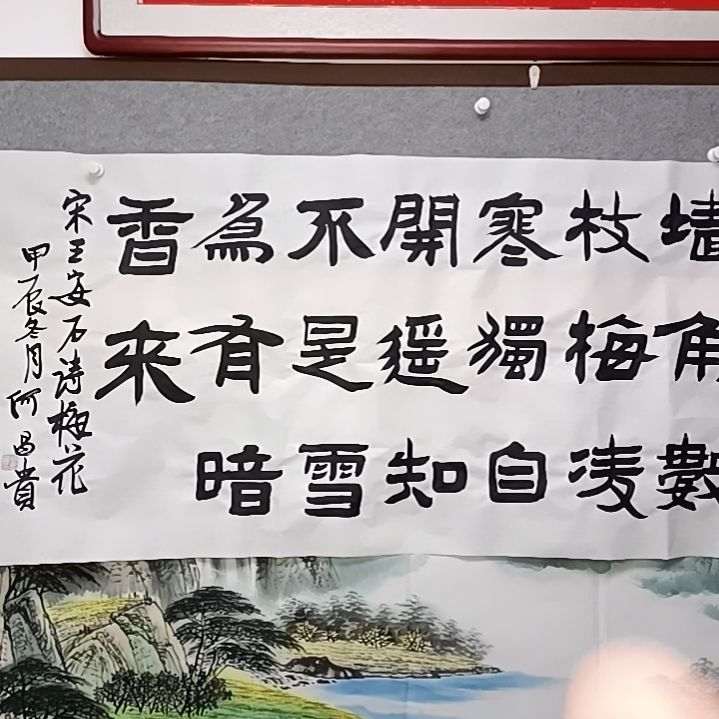 墙角數
枝梅凌
寒獨自
開遥知
不是雪
為有暗
香來
宋王安石诗梅花
甲辰冬月何昌貴